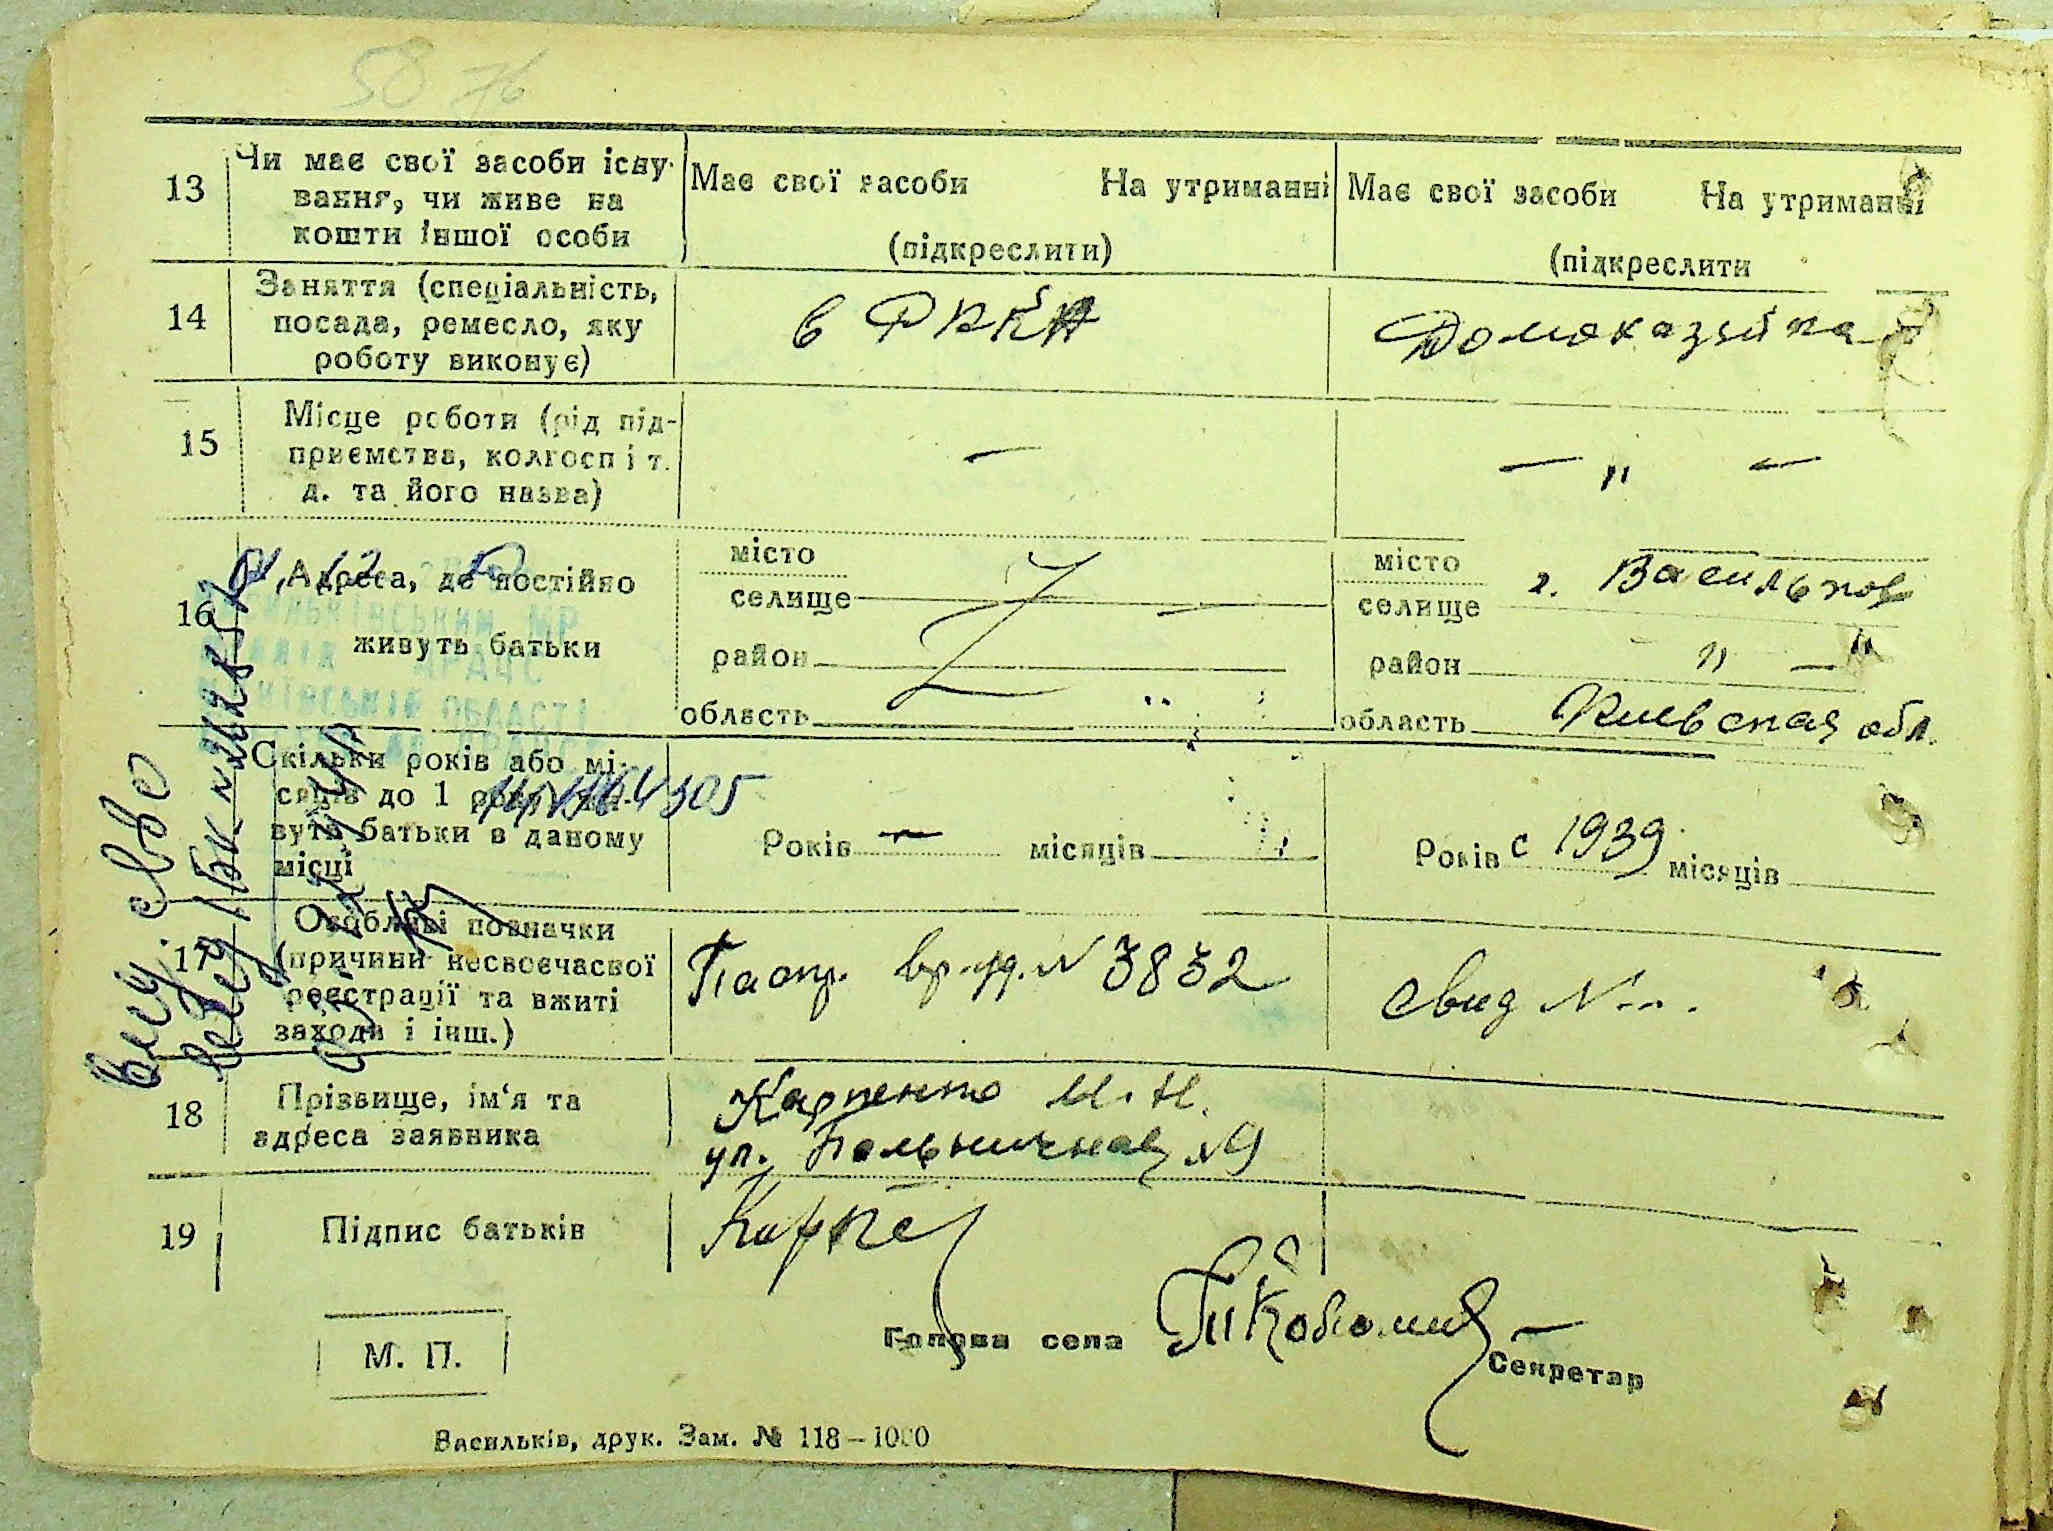 58 76
13
Чи має свої засоби існу-
вання, чи живе на
кошти іншої особи
Має свої засоби На утриманні
(підкреслити)
Має свої засоби На утриманні
(підкреслити
14
Заняття (спеціальність,
посада, ремесло, яку
роботу виконує)
в РККА
Домохазяйка
15
Місце роботи (рід під-
приємства, колгосп і т.
д. та його назва)
—
— „ —
16
Адреса, де постійно
живуть батьки
місто
селище
район
область
місто
селище г. Васильков
район „ — "
область Киевская обл.
Скільки років або мі-
сяців до 1 року жи-
вуть батьки в даному
місці
Років — місяців
Років с 1939 місяців
17
Особливі позначки
(причини несвоєчасної
реєстрації та вжиті
заходи і інш.)
Паспр. вр. уд. № 3832
свид №
18
Прізвище, ім'я та
адреса заявника
Карпенко М. Н.
ул. Больничная №9
19
Підпис батьків
Карпе
М. П.
Голова села
Секретар
Васильків, друк. Зам. № 118–1000